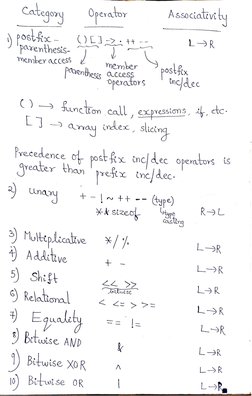 Category Operator Associativity
1) postfix - ( ) [ ] -> . ++ -- L→R
parenthesis-
member access
parenthesis
member access operators
postfix inc/dec
( ) → function call, expressions, if, etc.
[ ] → array index, slicing
Precedence of postfix inc/dec operators is
greater than prefix inc/dec.
2) unary + - ! ~ ++ -- (type)
type casting
* & sizeof R→L
3) Multiplicative * / % L→R
4) Additive + - L→R
5) Shift << >> L→R
bitwise
6) Relational < <= > >= L→R
7) Equality == != L→R
8) Bitwise AND & L→R
9) Bitwise XOR ^ L→R
10) Bitwise OR | L→R